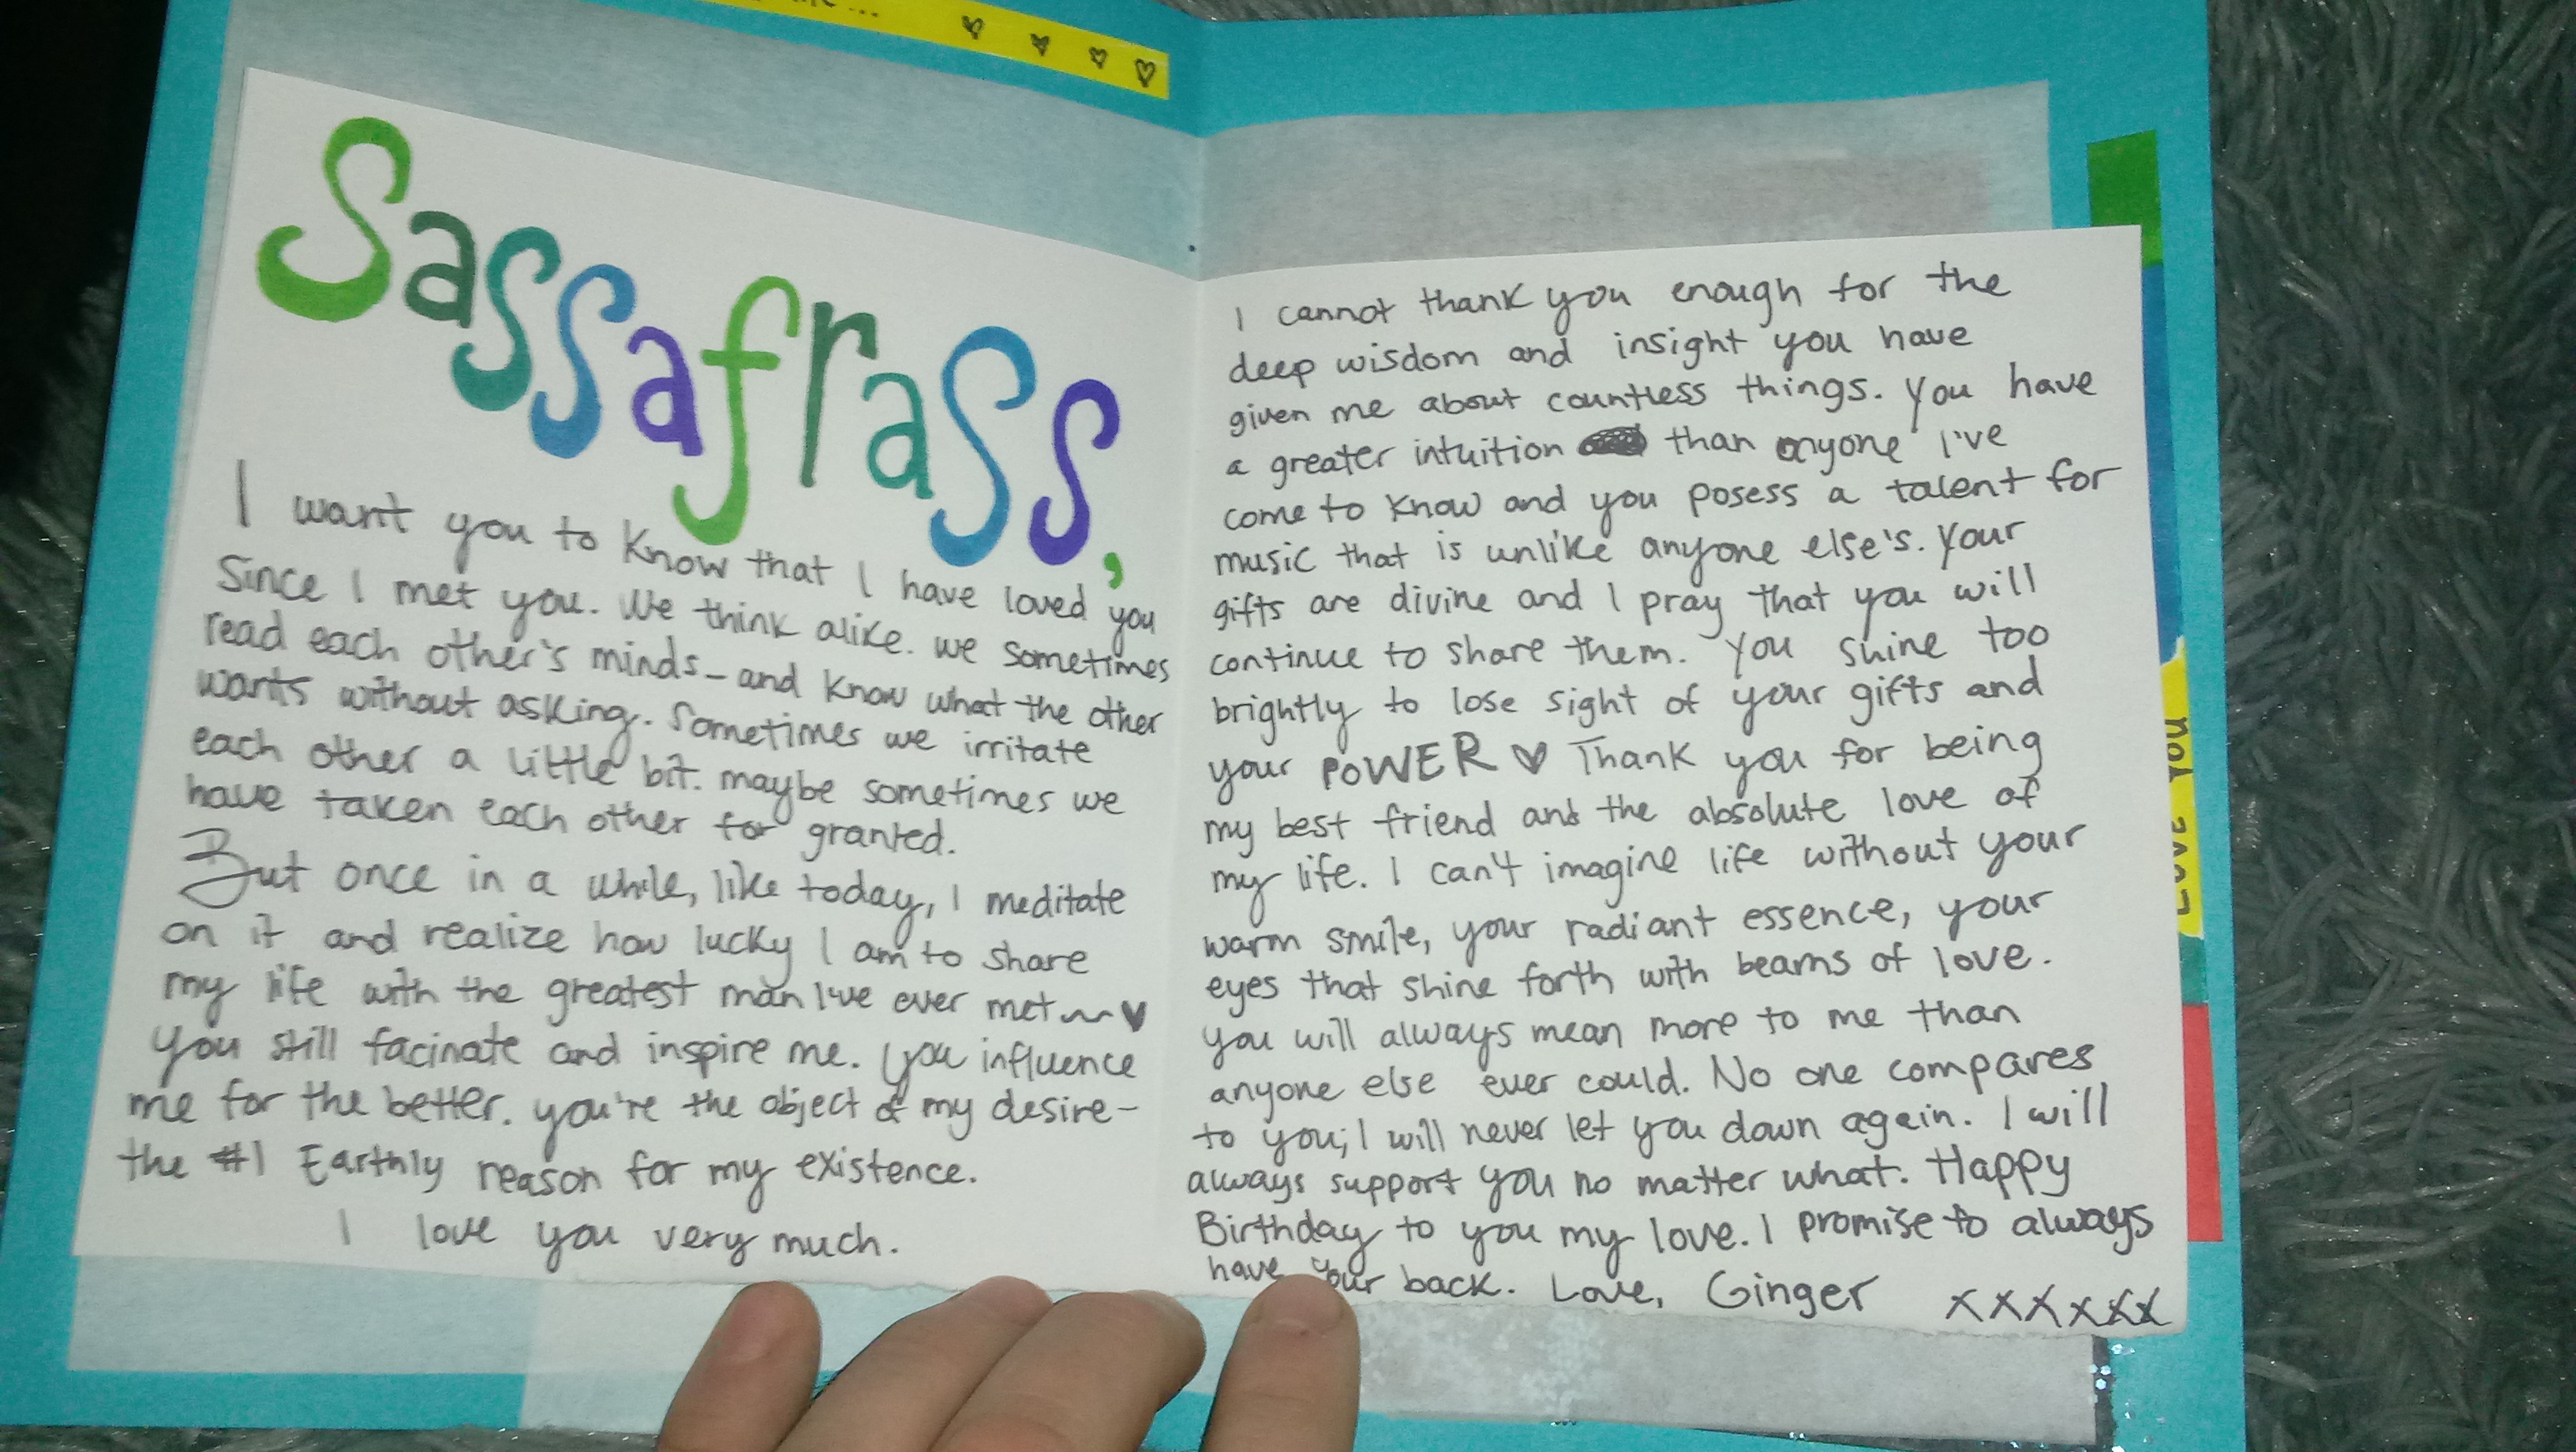 ♡ ♡ ♡ ♡
Sassafrass,
I want you to know that I have loved you
Since I met you. We think alike. we sometimes
read each other's minds - and know what the other
wants without asking. Sometimes we irritate
each other a little bit. maybe sometimes we
have taken each other for granted.
But once in a while, like today, I meditate
on it and realize how lucky I am to share
my life with the greatest man I've ever met ~ ♥
You still facinate and inspire me. You influence
me for the better. you're the object of my desire -
the #1 Earthly reason for my existence.
I love you very much.
I cannot thank you enough for the
deep wisdom and insight you have
given me about countless things. You have
a greater intuition than anyone I've
come to know and you posess a talent for
music that is unlike anyone else's. Your
gifts are divine and I pray that you will
continue to share them. You shine too
brightly to lose sight of your gifts and
your POWER ♥ Thank you for being
my best friend and the absolute love of
my life. I can't imagine life without your
warm smile, your radiant essence, your
eyes that shine forth with beams of love.
you will always mean more to me than
anyone else ever could. No one compares
to you; I will never let you down again. I will
always support you no matter what. Happy
Birthday to you my love. I promise to always
have your back. Love, Ginger xxxxxx
Love You